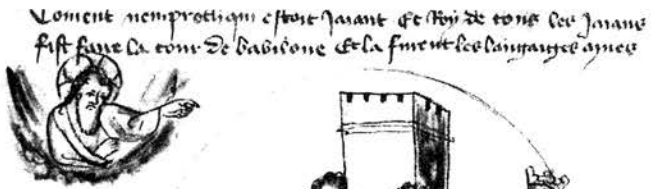 Coment nemproth qui estoit Jaiant Et Roy de tous les Jaians
fist faire la tour de babilone Et la furent les laingaiges